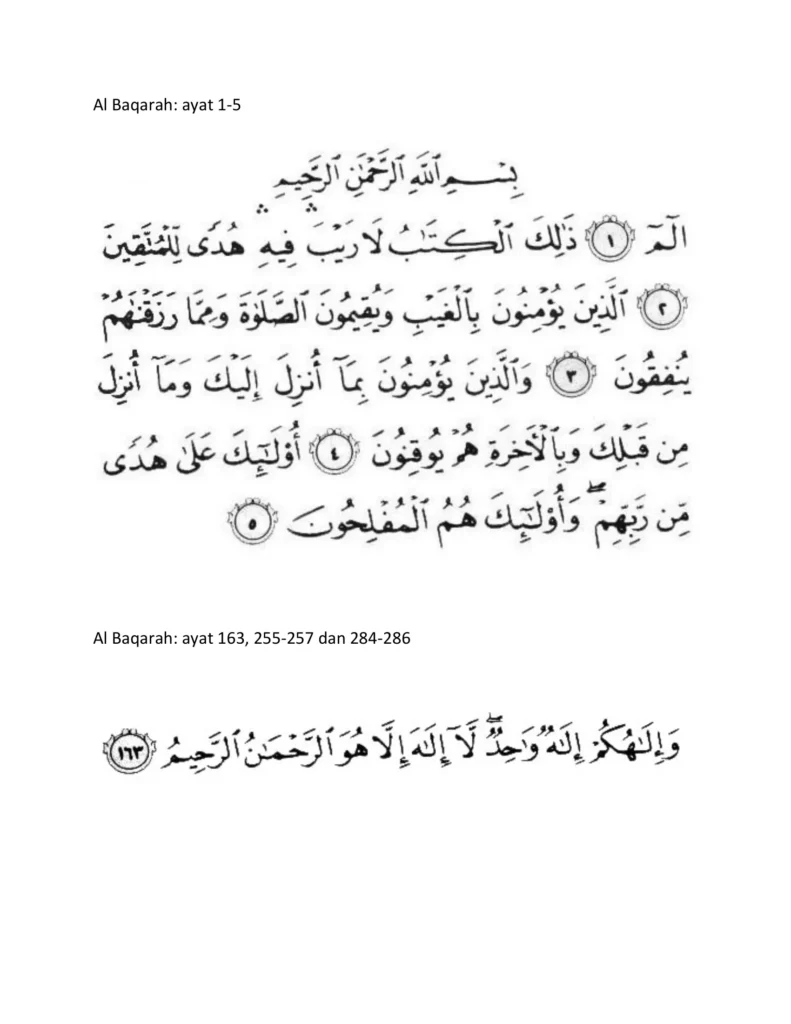 Al Baqarah: ayat 1-5
بِسْمِ ٱللَّهِ ٱلرَّحْمَٰنِ ٱلرَّحِيمِ
الٓمٓ ١ ذَٰلِكَ ٱلْكِتَٰبُ لَا رَيْبَ ۛ فِيهِ ۛ هُدًى لِّلْمُتَّقِينَ
٢ ٱلَّذِينَ يُؤْمِنُونَ بِٱلْغَيْبِ وَيُقِيمُونَ ٱلصَّلَوٰةَ وَمِمَّا رَزَقْنَٰهُمْ
يُنفِقُونَ ٣ وَٱلَّذِينَ يُؤْمِنُونَ بِمَآ أُنزِلَ إِلَيْكَ وَمَآ أُنزِلَ
مِن قَبْلِكَ وَبِٱلْأَخِرَةِ هُمْ يُوقِنُونَ ٤ أُوْلَٰٓئِكَ عَلَىٰ هُدًى
مِّن رَّبِّهِمْ ۖ وَأُوْلَٰٓئِكَ هُمُ ٱلْمُفْلِحُونَ ٥
Al Baqarah: ayat 163, 255-257 dan 284-286
وَإِلَٰهُكُمْ إِلَٰهٌ وَٰحِدٌ ۖ لَّآ إِلَٰهَ إِلَّا هُوَ ٱلرَّحْمَٰنُ ٱلرَّحِيمُ ١٦٣